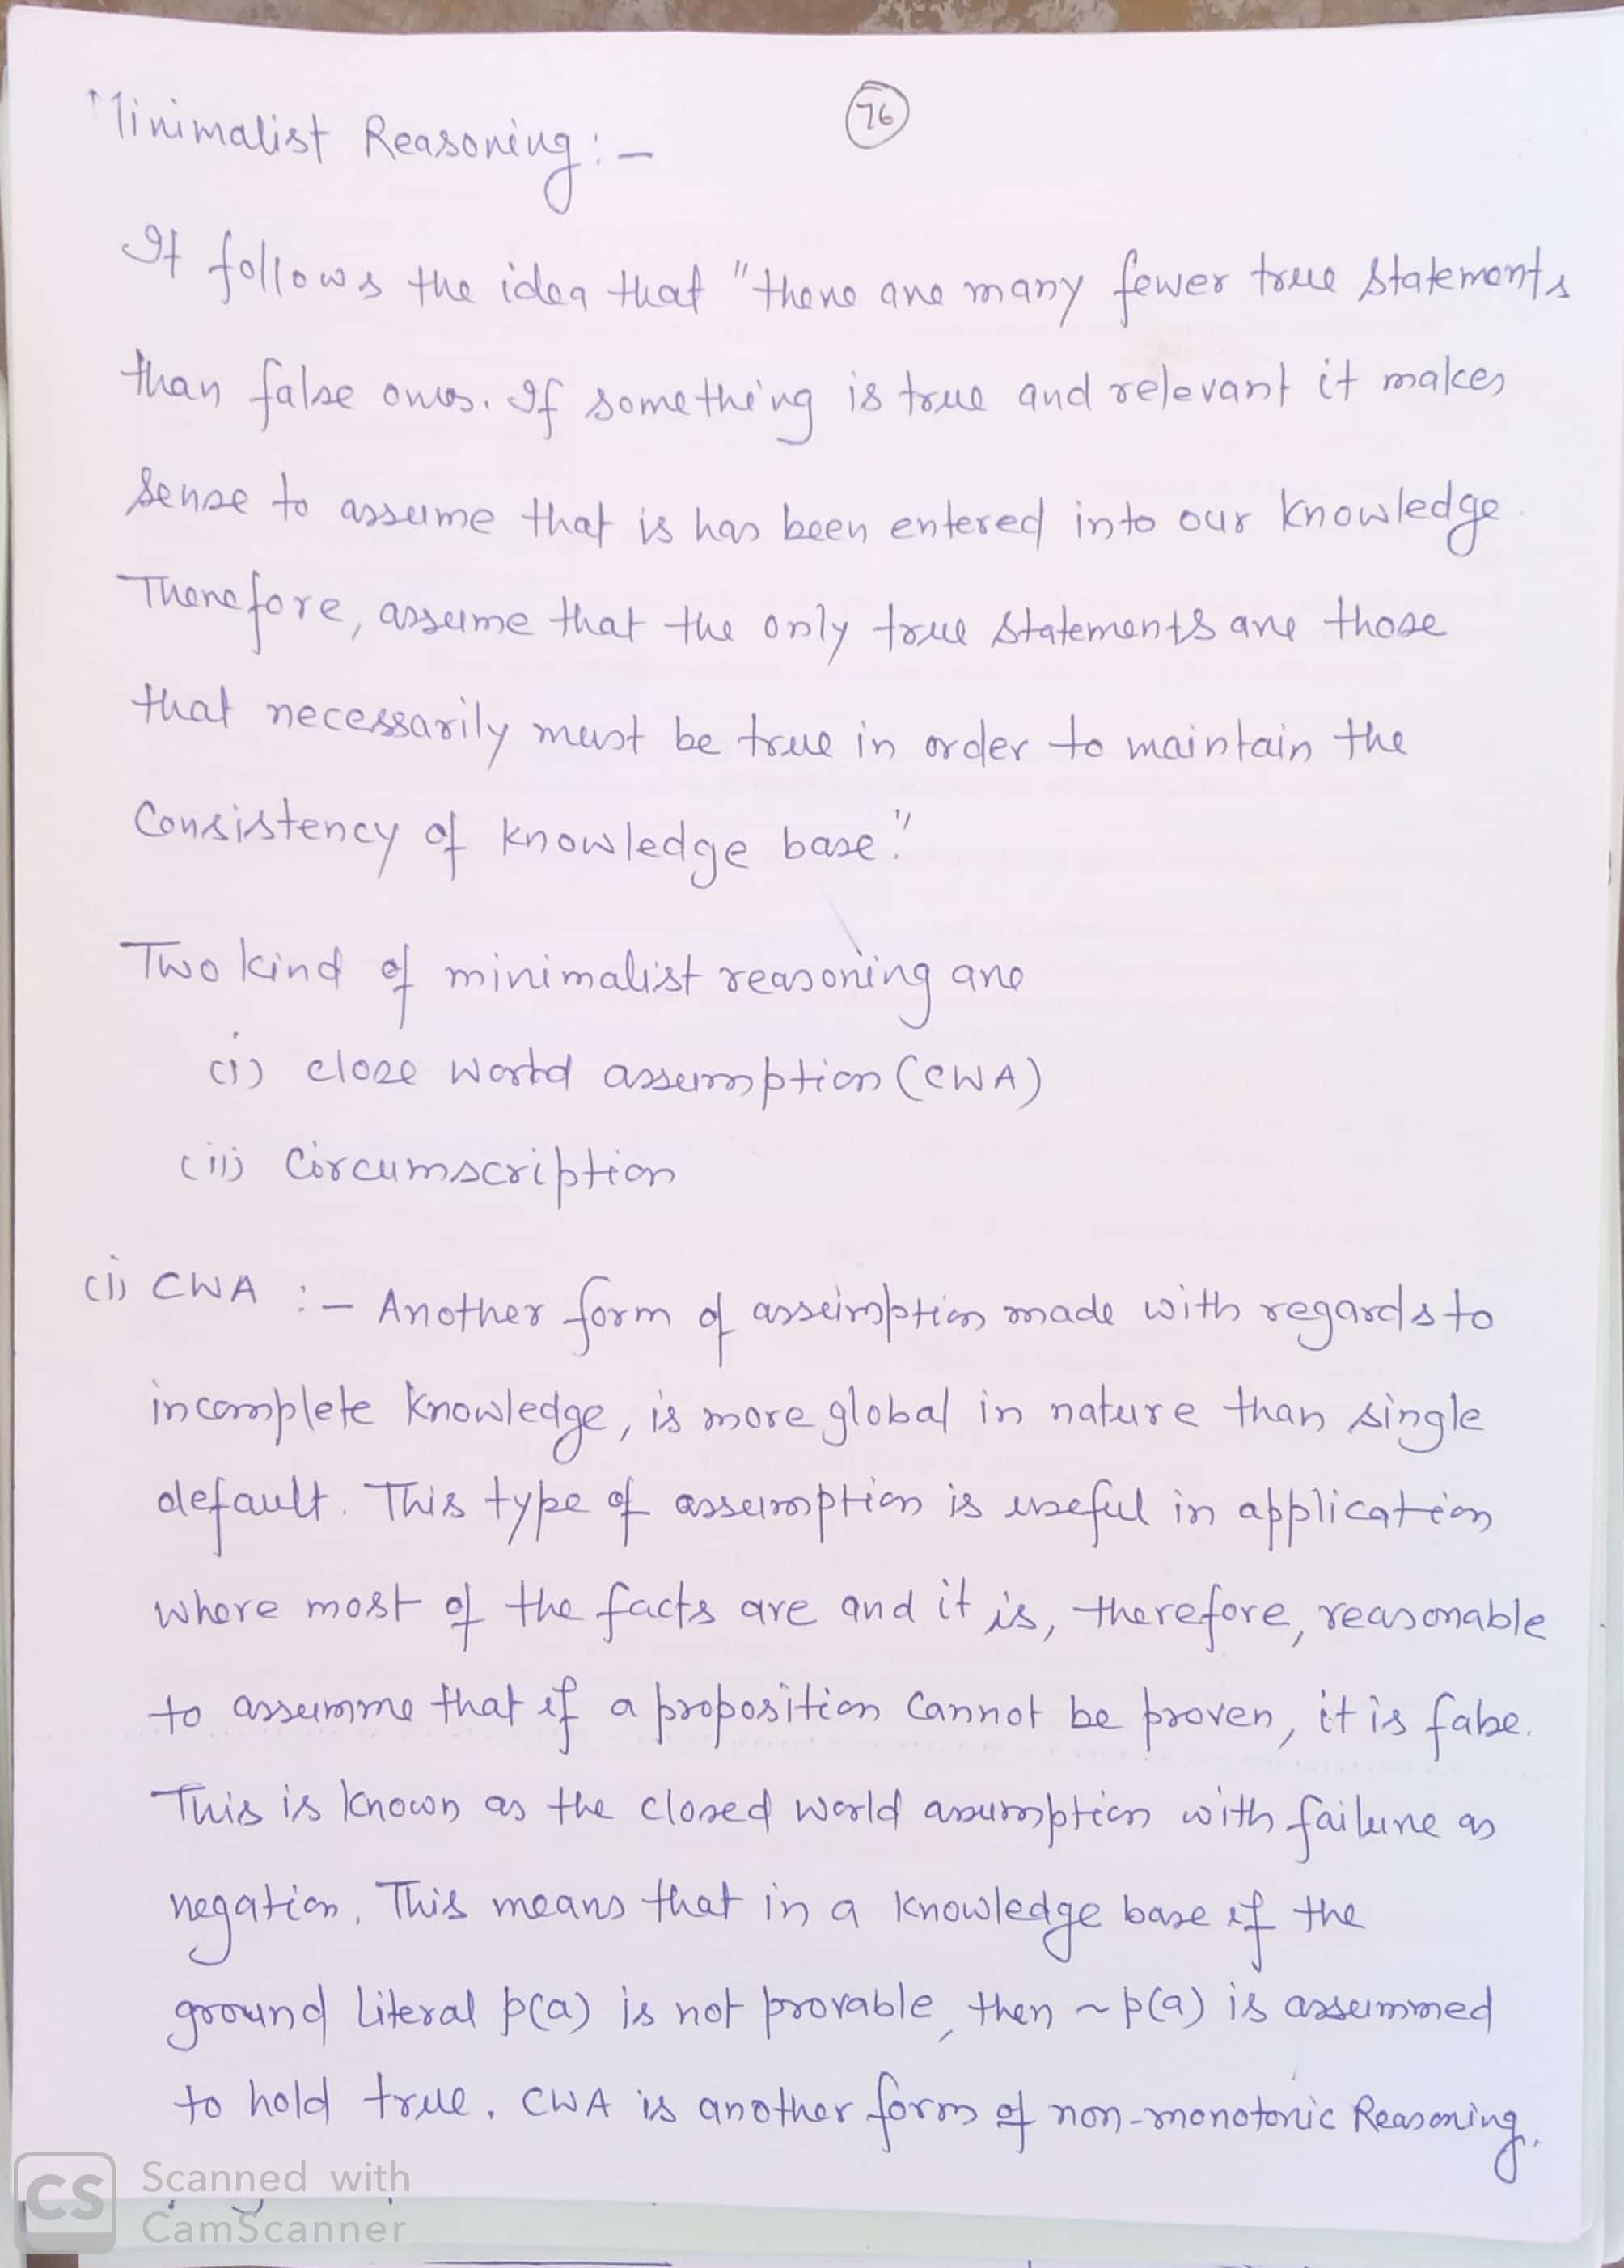 76
Minimalist Reasoning :-
It follows the idea that "there are many fewer true statements
than false ones. If something is true and relevant it makes
sense to assume that is has been entered into our knowledge.
Therefore, assume that the only true statements are those
that necessarily must be true in order to maintain the
Consistency of knowledge base."
Two kind of minimalist reasoning are
(i) close world assumption (CWA)
(ii) Circumscription
(i) CWA :- Another form of assumption made with regards to
incomplete knowledge, is more global in nature than single
default. This type of assumption is useful in application
where most of the facts are and it is, therefore, reasonable
to assumme that if a proposition cannot be proven, it is false.
This is known as the closed world assumption with failure as
negation. This means that in a knowledge base if the
ground literal p(a) is not provable, then ~p(a) is assummed
to hold true. CWA is another form of non-monotonic Reasoning.
CS Scanned with
CamScanner